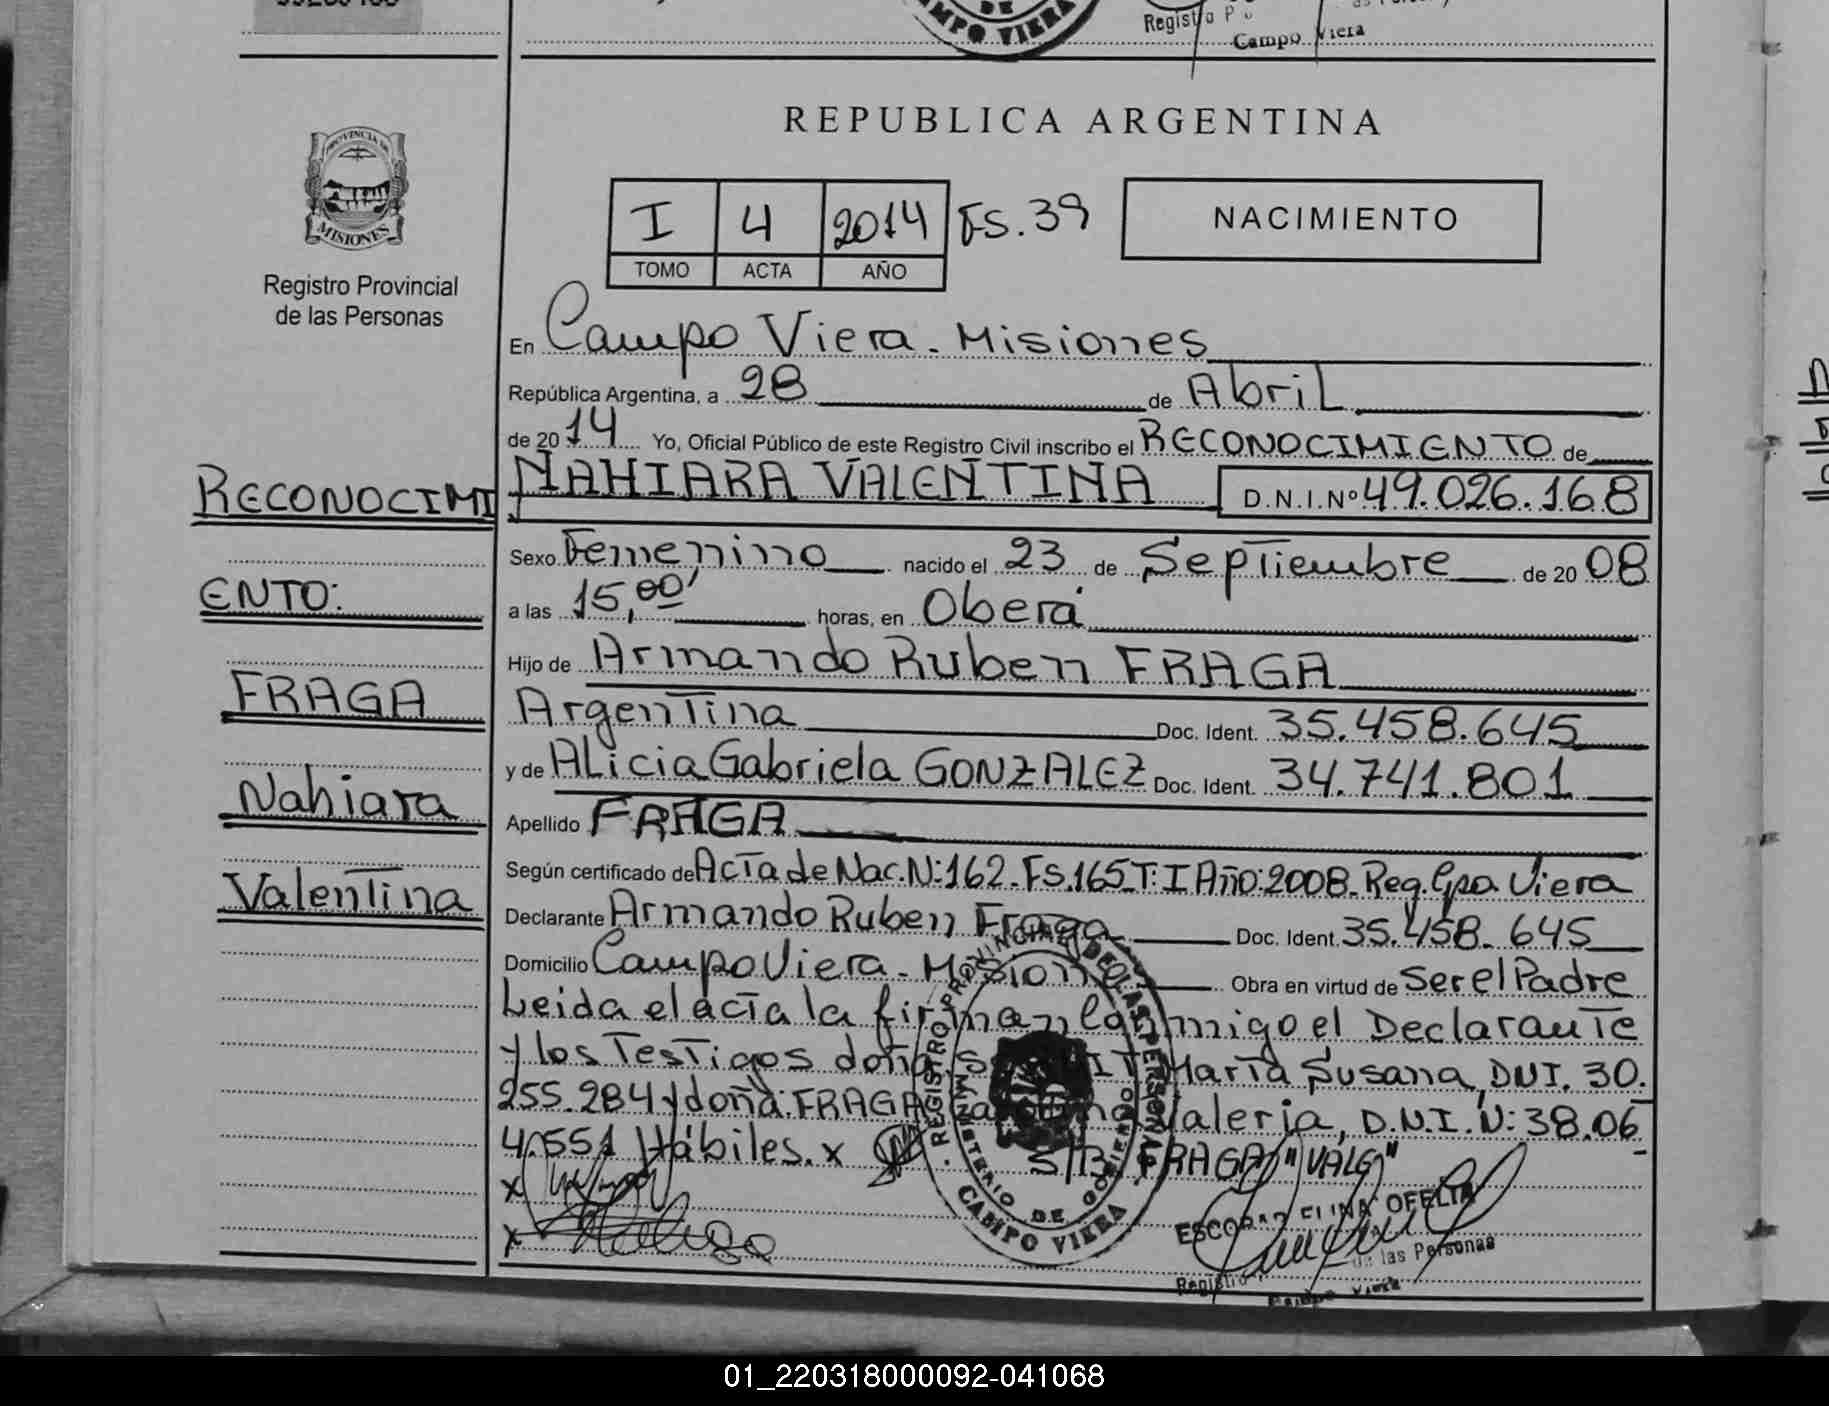 DE
CAMPO VIERA
Campo Viera
REPUBLICA ARGENTINA
PROVINCIA DE
MISIONES
Registro Provincial
de las Personas
I 4 2014 FS.39
TOMO ACTA AÑO
NACIMIENTO
En Campo Viera - Misiones
República Argentina, a 28 de Abril
de 2014 Yo, Oficial Público de este Registro Civil inscribo el RECONOCIMIENTO de
NAHIARA VALENTINA D.N.I.Nº 49.026.168
RECONOCIMI
ENTO:
FRAGA
Nahiara
Valentina
Sexo Femenino nacido el 23 de Septiembre de 2008
a las 15,00' horas, en Oberá
Hijo de Armando Ruben FRAGA
Argentina Doc. Ident. 35.458.645
y de ALicia Gabriela GONZALEZ Doc. Ident. 34.741.801
Apellido FRAGA
Según certificado de Acta de Nac. N:162-FS.165 T:I Año:2008-Reg. Cpo. Viera
Declarante Armando Ruben Fraga Doc. Ident. 35.458.645
Domicilio Campo Viera - Misiones Obra en virtud de Ser el Padre
Leida el acta la firman conmigo el Declarante
y los Testigos doña María Susana, DNI. 30.
255.284 y doña: FRAGA Valeria, D.N.I. N: 38.06
4.551 Hábiles. x S/B, FRAGA "VALE"
x
x
REGISTRO PROVINCIAL DE LAS PERSONAS
MINISTERIO DE GOBIERNO
CAMPO VIERA
ELINA OFELIA
de las Personas
01_220318000092-041068